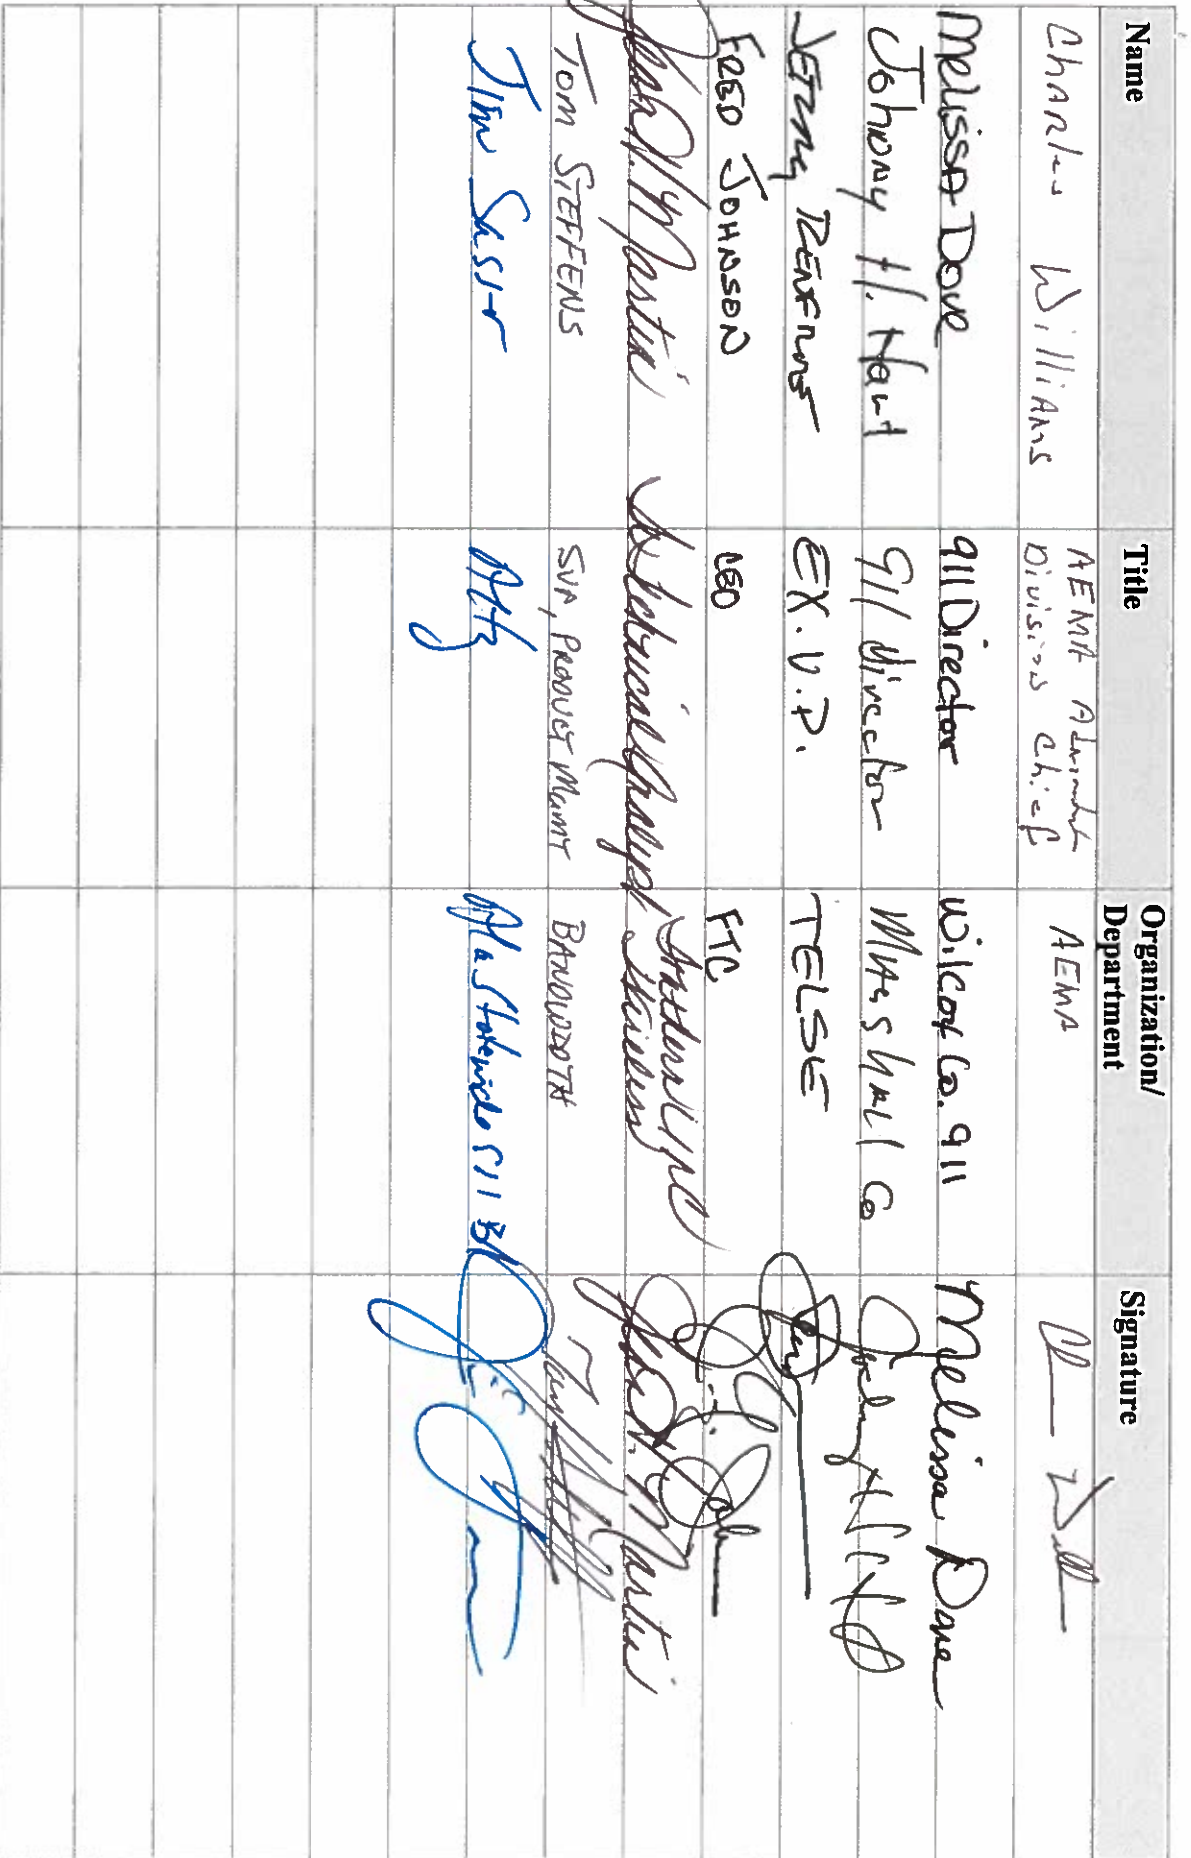 Name Title Organization/
Department Signature
Charles Williams AEMA
Division Chief AEMA
Melissa Dove 911 Director Wilcox Co. 911 Melissa Dove
Johnny H. Hart 911 director Marshall Co
Jerry Renfroe EX. V.P. TELSE
FRED JOHNSON CEO FTC
Jean H. Martin Technical Analyst Jean H. Martin
TOM STEFFENS SVP, PRODUCT MGMT BANDWIDTH
Jim Sasser Atty Ala Statewide 911 Bd